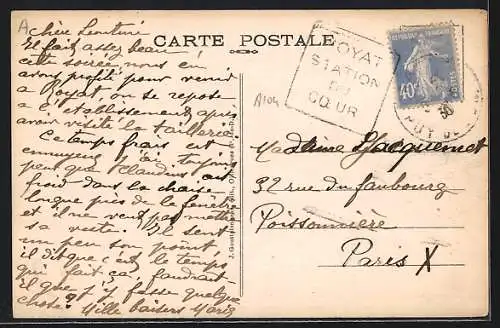 A
CARTE POSTALE
chère Lenturi
Il fait assez beau
cette soirée, nous en
avons profité pour venir
a Royat on se repose
à l'établissement après
avoir visité la taillerie
Ce temps frais est
ennuyeux j'ai toujours
peur que Claudius ait
froid dans la chaise
longue près de la fenêtre
et il ne veut pas mettre
sa veste. Il sent
un peu son point
il dit que c'est le temps
qui fait ça, faudrait
il que j'y fasse quelque
chose? Mille baisers Marie
ROYAT
STATION
DU
CŒUR
REPUBLIQUE FRANÇAISE
POSTES
40c
PUY DE
30
Madame Jacquemet
32 rue du faubourg
Poissonnière
Paris X